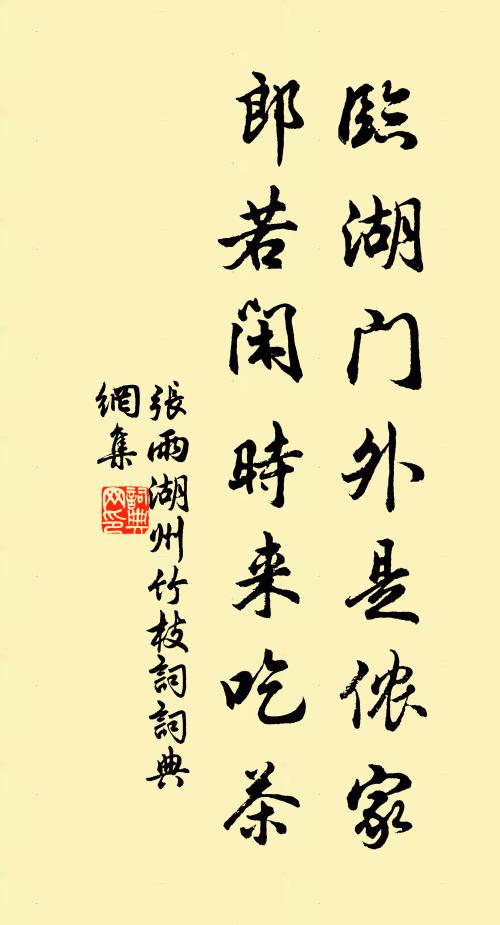 臨湖门外是侬家
郎若闲時来吃茶
張雨湖州竹枝詞詞典
網集
詞典
网印